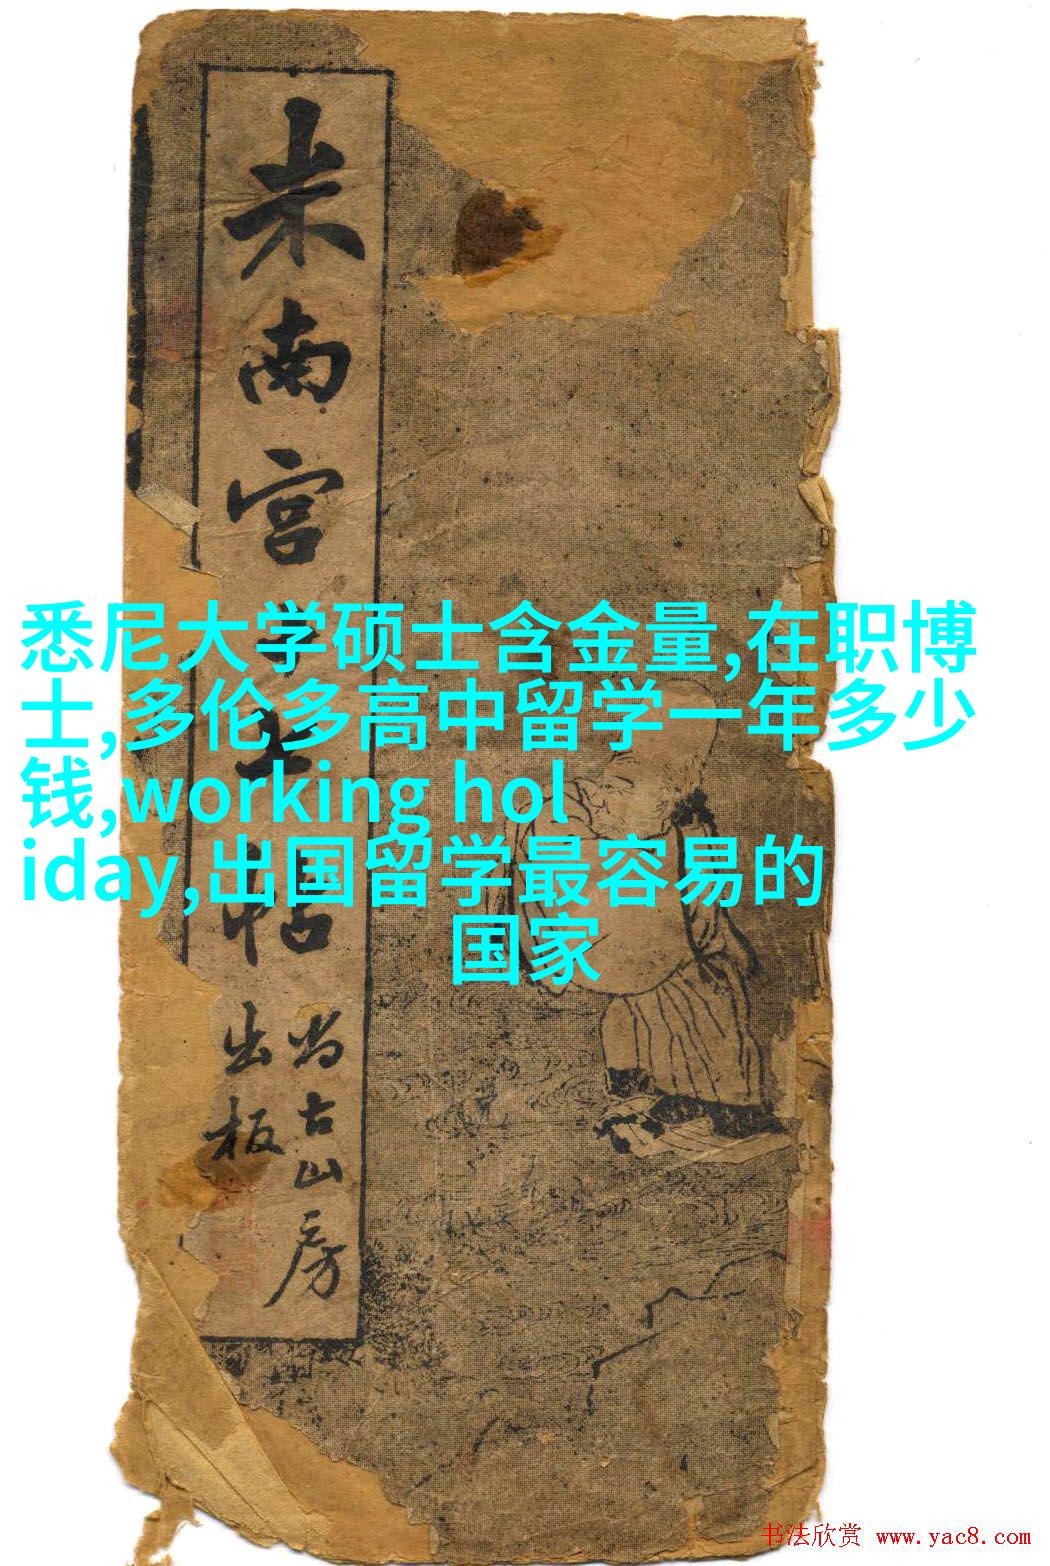 悉尼大学硕士含金量,在职博
士,多伦多高中留学一年多少
钱,working hol
iday,出国留学最容易的
国家
米南宫
帖
尚古山房
出板
书法欣赏 www.yac8.com